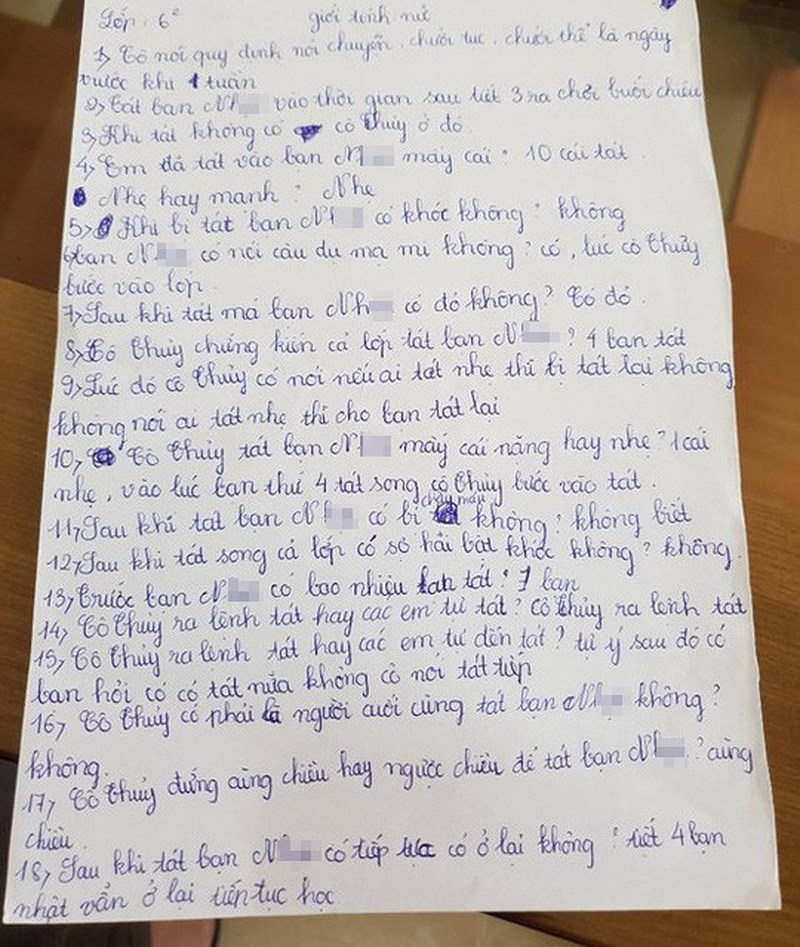 Lớp: 6² giới tính nữ
1, Cô nói quy định nói chuyện, chười tục, chười thề là ngày
trước khi 1 tuần
2, Tát bạn Nh vào thời gian sau tiết 3 ra chơi buổi chiều
3, Khi tát không có cô Thủy ở đó.
4, Em đã tát vào bạn N mấy cái? 10 cái tát.
Nhẹ hay mạnh? Nhẹ
5, Khi bị tát bạn N có khóc không? không
6, bạn N có nói câu dụ mạ mi không? có, lúc cô Thủy
bước vào lớp.
7, Sau khi tát má bạn Nh có đỏ không? Có đỏ.
8, Cô Thủy chứng kiến cả lớp tát bạn N ? 4 bạn tát
9, Lúc đó cô Thủy có nói nếu ai tát nhẹ thì bị tát lại không
không nói ai tát nhẹ thì cho bạn tát lại
10, Cô Thủy tát bạn N mấy cái nặng hay nhẹ? 1 cái
nhẹ, vào lúc bạn thứ 4 tát song cô Thủy bước vào tát.
11, Sau khi tát bạn N có bị chảy máu không? không biết
12, Sau khi tát song cả lớp có sợ hãi bật khóc không? không.
13, Trước bạn N có bao nhiêu bạn tát? 7 bạn
14, Cô Thủy ra lệnh tát hay các em tự tát? cô Thủy ra lệnh tát
15, Cô Thủy ra lệnh tát hay các em tự đến tát? tự ý sau đó có
bạn hỏi cô có tát nữa không cô nói tát tiếp
16, Cô Thủy có phải là người cuối cùng tát bạn N không?
không.
17, Cô Thủy đứng cùng chiều hay ngược chiều để tát bạn N ? cùng
chiều.
18, Sau khi tát bạn N có tiếp tục có ở lại không? tiết 4 bạn
nhật vẫn ở lại tiếp tục học